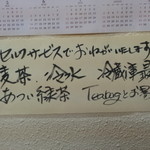 セルフサービスでおねがいします
麦茶 冷水 冷蔵庫
あつい緑茶 Teabagとお